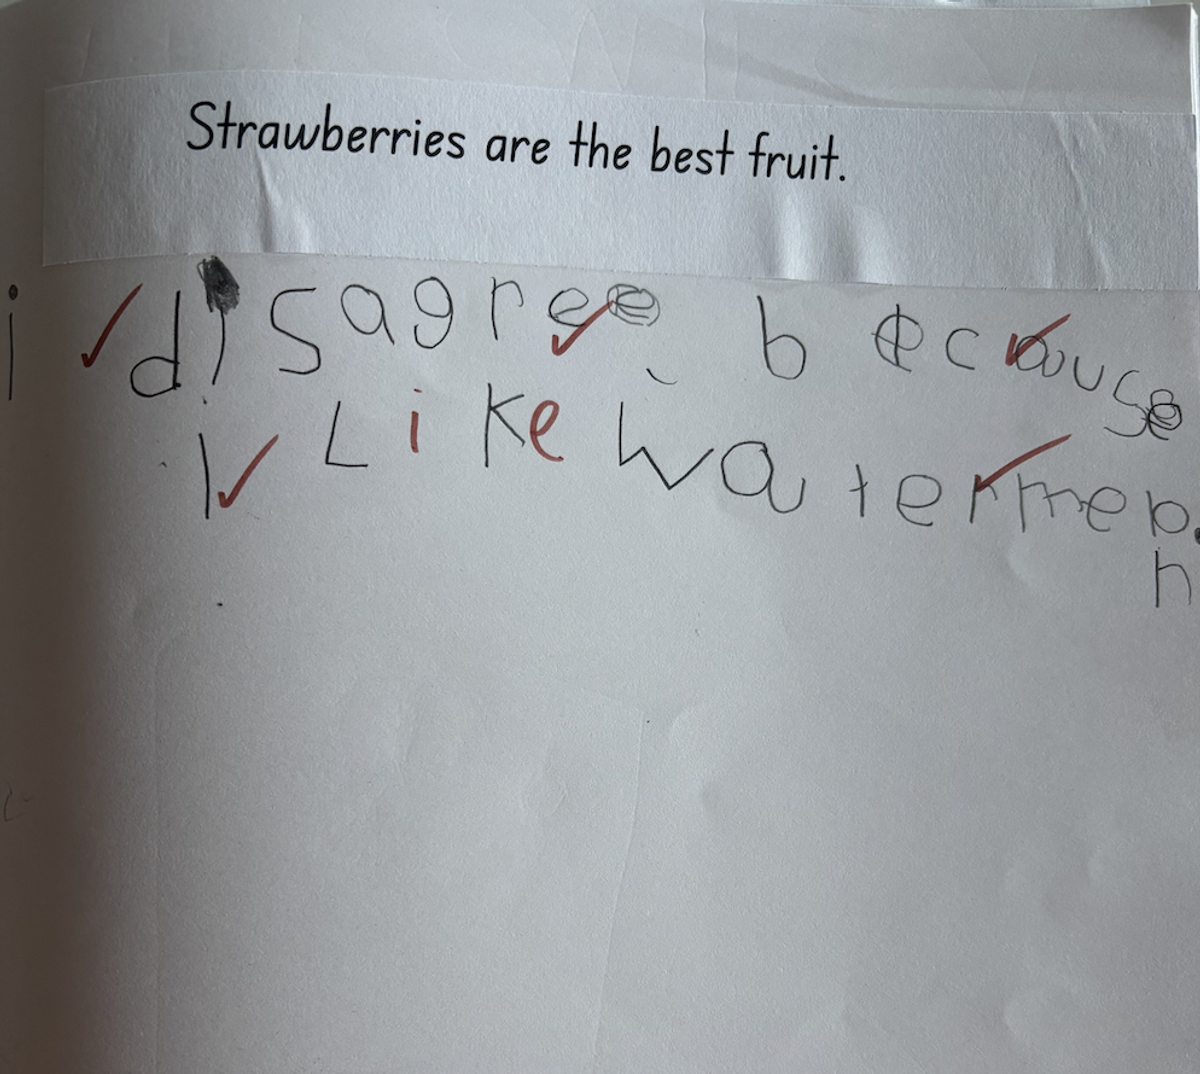 Strawberries are the best fruit.
i disagree because
I Like watermep.
n